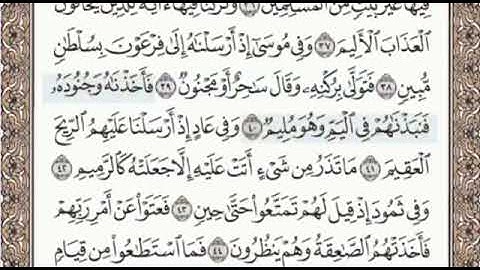 فِيهَا غَيْرَ بَيْتٍ مِّنَ ٱلْمُسْلِمِينَ ٣٦ وَتَرَكْنَا فِيهَآ ءَايَةً لِّلَّذِينَ يَخَافُونَ
ٱلْعَذَابَ ٱلْأَلِيمَ ٣٧ وَفِى مُوسَىٰٓ إِذْ أَرْسَلْنَٰهُ إِلَىٰ فِرْعَوْنَ بِسُلْطَٰنٍ
مُّبِينٍ ٣٨ فَتَوَلَّىٰ بِرُكْنِهِۦ وَقَالَ سَٰحِرٌ أَوْ مَجْنُونٌ ٣٩ فَأَخَذْنَٰهُ وَجُنُودَهُۥ
فَنَبَذْنَٰهُمْ فِى ٱلْيَمِّ وَهُوَ مُلِيمٌ ٤٠ وَفِى عَادٍ إِذْ أَرْسَلْنَا عَلَيْهِمُ ٱلرِّيحَ
ٱلْعَقِيمَ ٤١ مَا تَذَرُ مِن شَىْءٍ أَتَتْ عَلَيْهِ إِلَّا جَعَلَتْهُ كَٱلرَّمِيمِ ٤٢
وَفِى ثَمُودَ إِذْ قِيلَ لَهُمْ تَمَتَّعُوا۟ حَتَّىٰ حِينٍ ٤٣ فَعَتَوْا۟ عَنْ أَمْرِ رَبِّهِمْ
فَأَخَذَتْهُمُ ٱلصَّٰعِقَةُ وَهُمْ يَنظُرُونَ ٤٤ فَمَا ٱسْتَطَٰعُوا۟ مِن قِيَامٍ